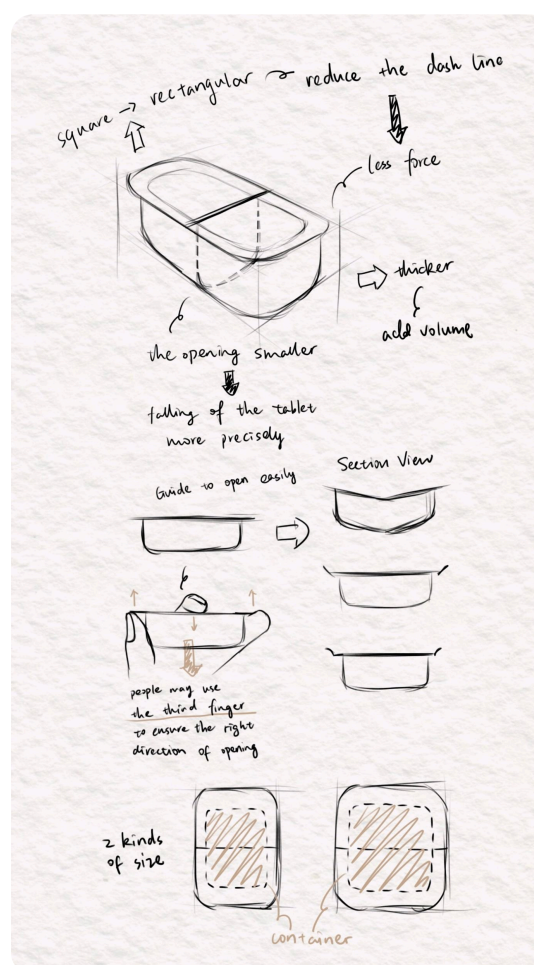 square → rectangular ~ reduce the dash line
less force
thicker
add volume
the opening smaller
falling of the tablet
more precisely
Guide to open easily
Section View
people may use
the third finger
to ensure the right
direction of opening
2 kinds
of size
container